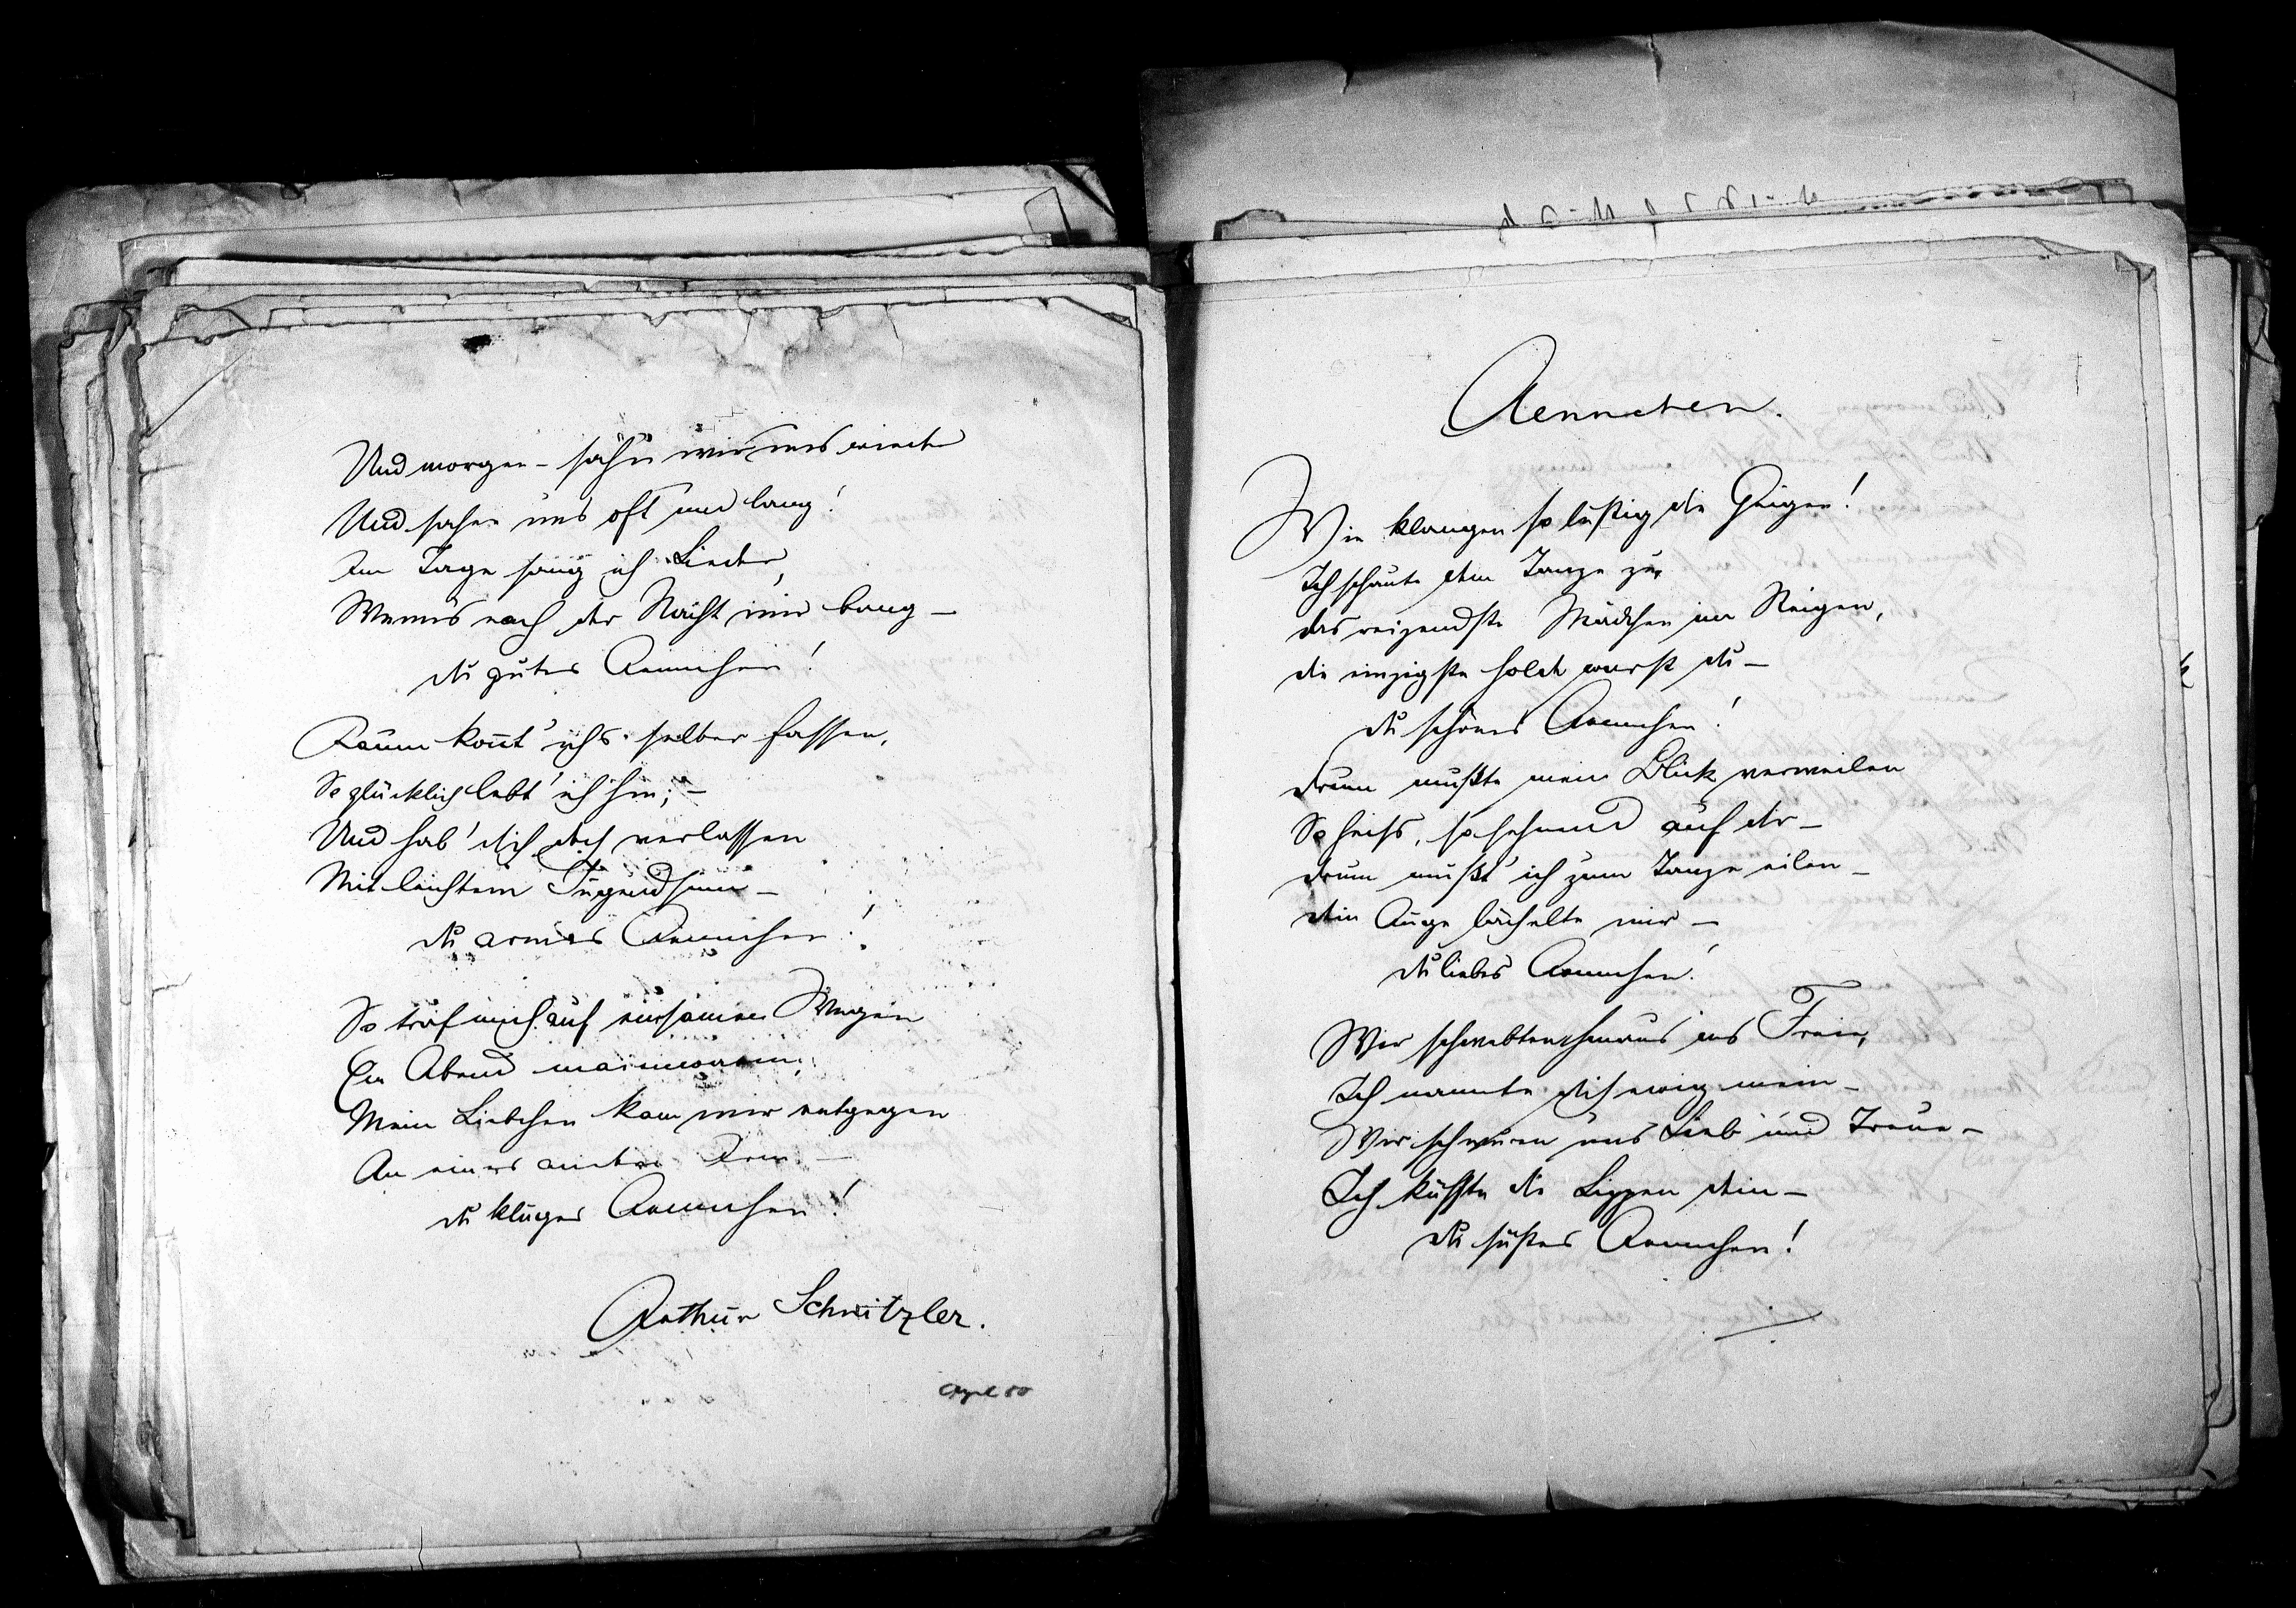 Und morgen – sah'n wir uns wieder
Und sahen uns oft und lang!
Am Tage sang ich Lieder,
Wenns nach der Nacht mir bang –
du gutes Aennchen!
Kaum kont' ichs selber fassen,
So glücklich lebt' ich hin; –
Und hab' dich doch verlassen
Mit leichtem Jugendsinn –
du armes Aennchen!
So traf mich auf einsamen Wegen
Ein Abend maienwarm;
Mein Liebchen kam mir entgegen
An eines andern Arm –
du kluges Aennchen!
Arthur Schnitzler.
April 80
Aennchen.
Wie klangen so lustig die Geigen!
Ich schaute dem Tanze zu,
das reizendste Mädchen im Reigen,
die einzigste holde warst du –
du schönes Aennchen!
drum mußte mein Blick verweilen
So heiß, so sehnend auf dir –
drum mußt' ich zum Tanze eilen –
dein Auge lächelte mir –
du liebes Aennchen!
Wir schwebten hinaus ins Freie,
Ich nannte dich ewig mein –
Wir schwuren uns Lieb und Treue –
Ich küsste die Lippen dein –
du süßes Aennchen!